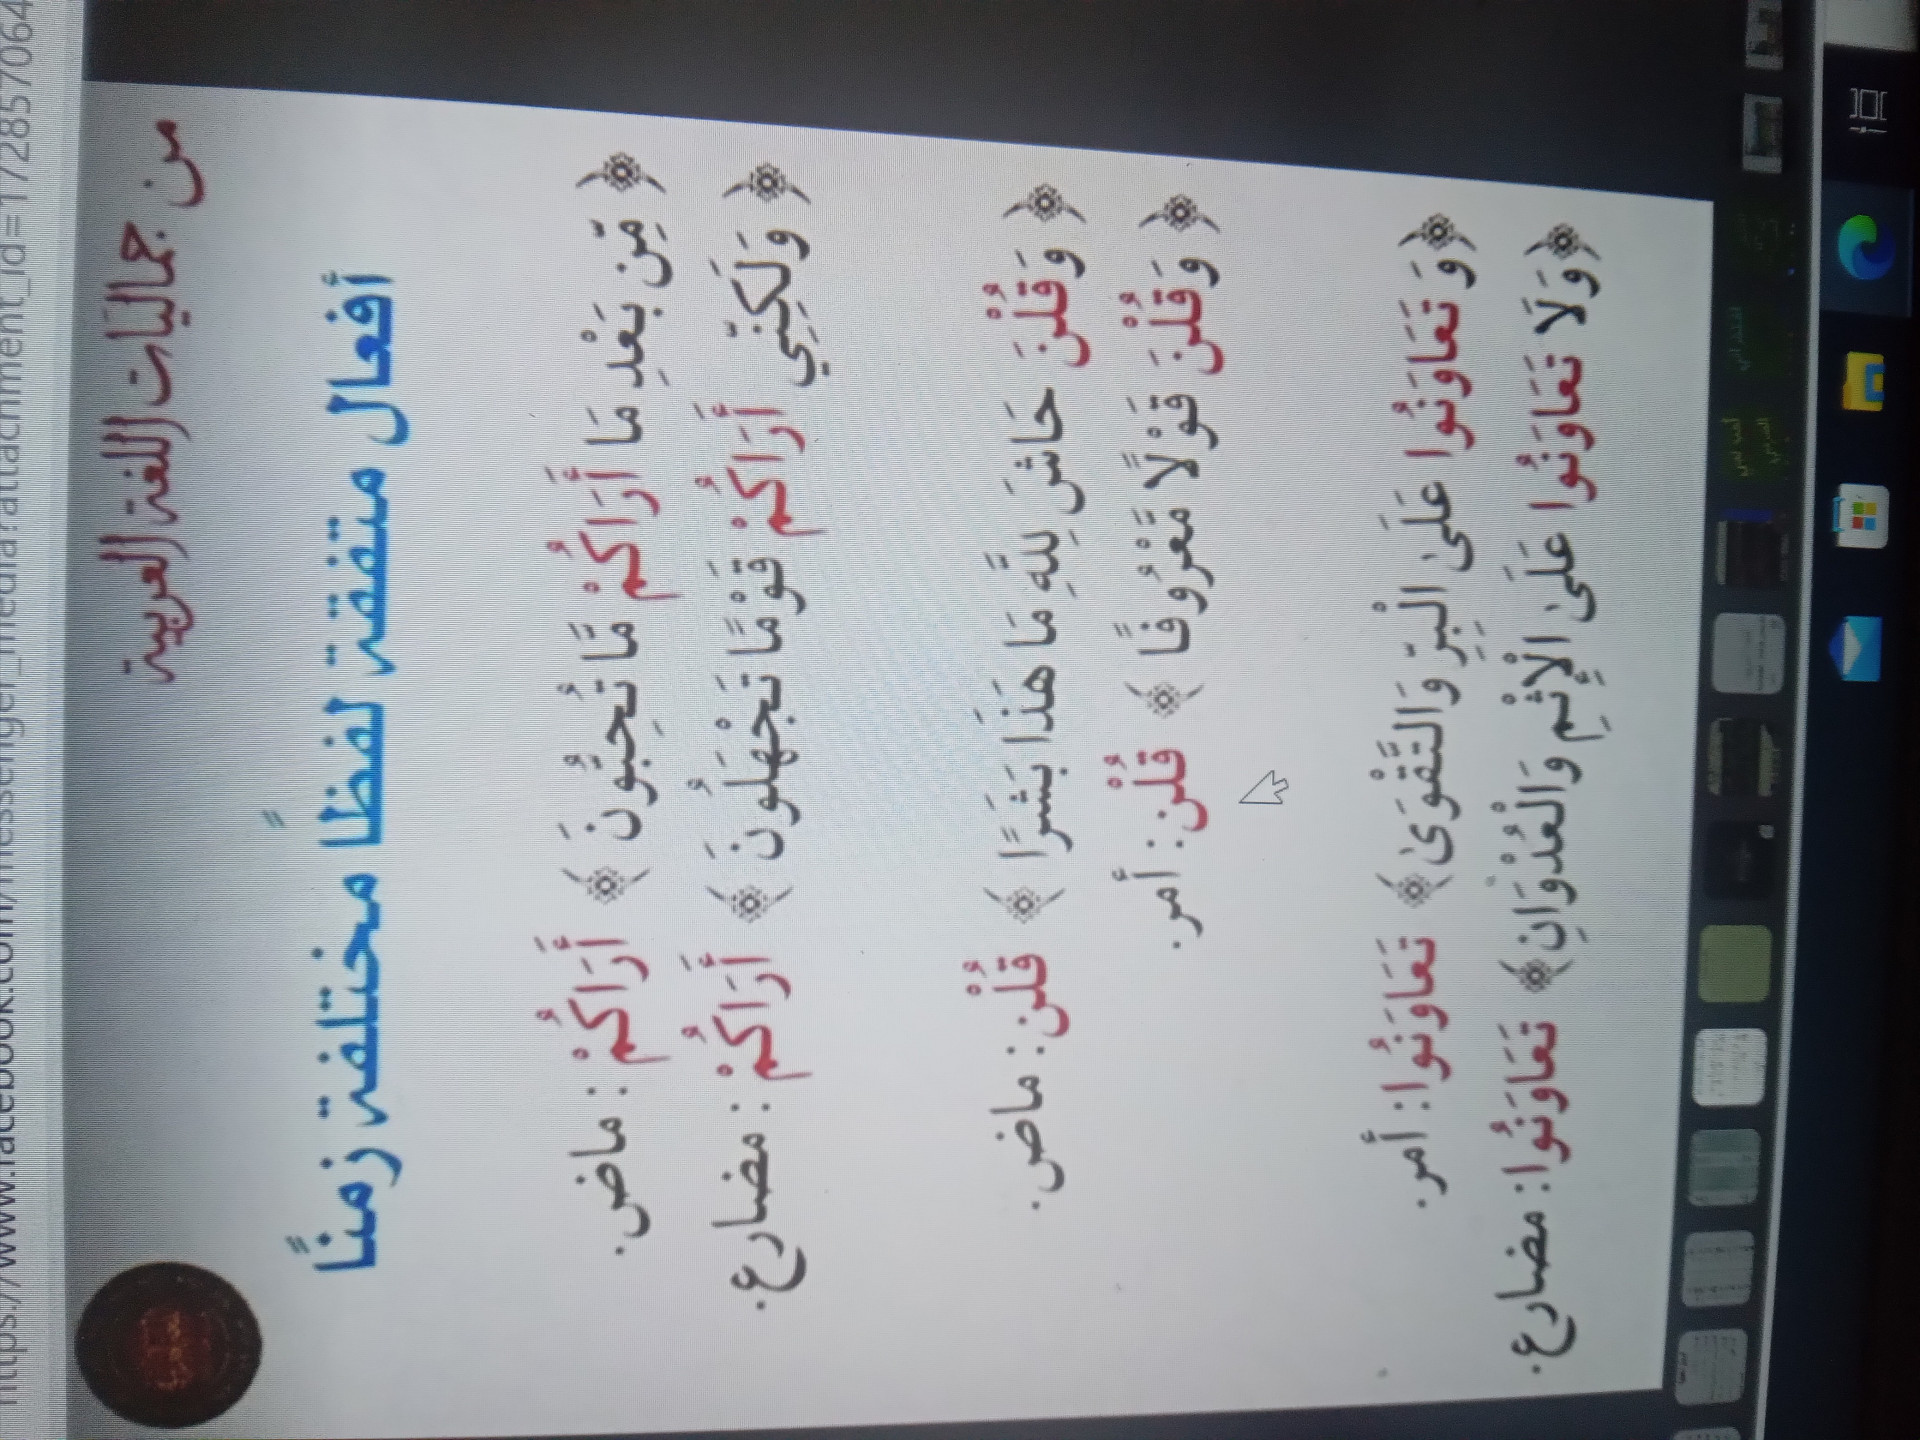 https://www.facebook.com/messenger_media?attachment_id=172857064
من جماليات اللغة العربية
أفعال متفقة لفظًا مختلفة زمنًا
﴿ مِّن بَعْدِ مَا أَرَاكُمْ مَّا تُحِبُّونَ ﴾ أَرَاكُمْ : ماض.
﴿ وَلَكِنِّي أَرَاكُمْ قَوْمًا تَجْهَلُونَ ﴾ أَرَاكُمْ : مضارع.
﴿ وَقُلْنَ حَاشَ لِلَّهِ مَا هَذَا بَشَرًا ﴾ قُلْن : ماض.
﴿ وَقُلْنَ قَوْلًا مَّعْرُوفًا ﴾ قُلْن : أمر.
﴿وَ تَعَاوَنُوا عَلَى الْبِرِّ وَالتَّقْوَىٰ﴾ تَعَاوَنُوا: أمر.
﴿وَلَا تَعَاوَنُوا عَلَى الْإِثْمِ وَالْعُدْوَانِ﴾ تَعَاوَنُوا: مضارع.